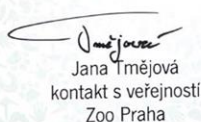 Tmějová
Jana Tmějová
kontakt s veřejností
Zoo Praha